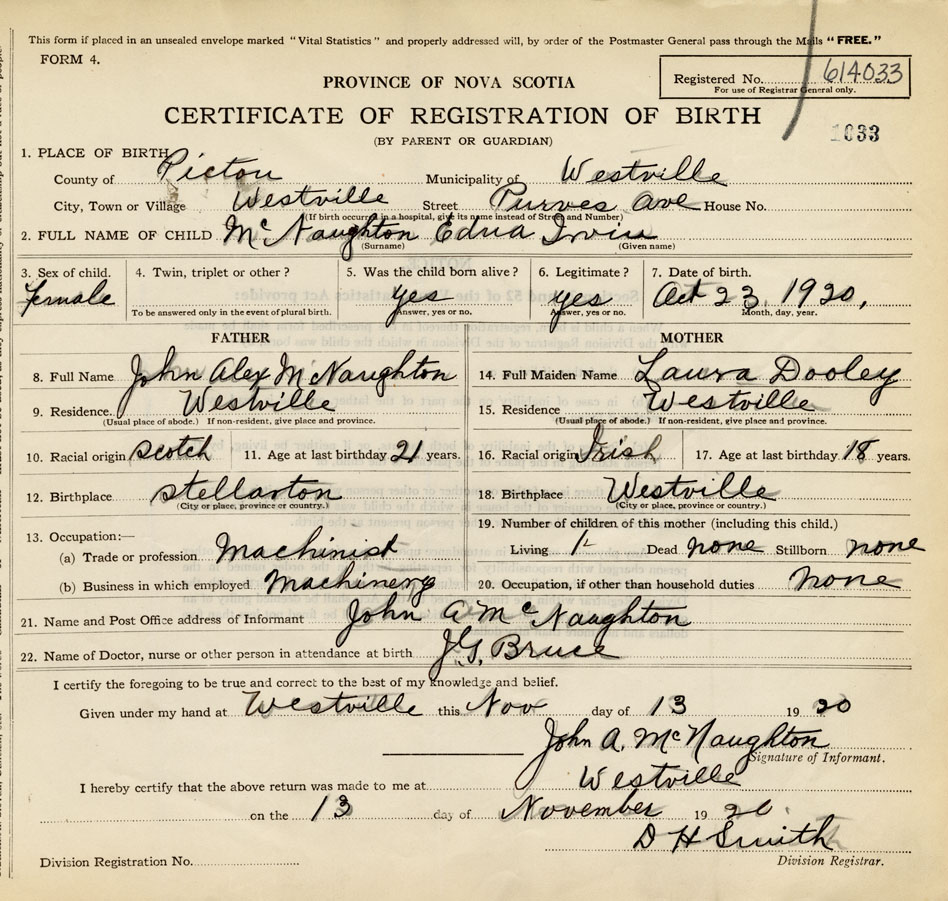 This form if placed in an unsealed envelope marked "Vital Statistics" and properly addressed will, by order of the Postmaster General pass through the Mails "FREE."
FORM 4.
Registered No. 614033
For use of Registrar General only.
PROVINCE OF NOVA SCOTIA
CERTIFICATE OF REGISTRATION OF BIRTH
(BY PARENT OR GUARDIAN)
1033
1. PLACE OF BIRTH
County of Picton Municipality of Westville
City, Town or Village Westville Street Purves Ave House No.
(If birth occurred in a hospital, give its name instead of Street and Number)
2. FULL NAME OF CHILD McNaughton Edna Irvin
(Surname) (Given name)
3. Sex of child. 4. Twin, triplet or other? 5. Was the child born alive? 6. Legitimate? 7. Date of birth.
female Yes Yes Oct 23, 1920,
To be answered only in the event of plural birth. Answer, yes or no. Answer, yes or no. Month, day, year.
FATHER MOTHER
8. Full Name John Alex McNaughton 14. Full Maiden Name Laura Dooley
9. Residence. Westville 15. Residence Westville
(Usual place of abode.) If non-resident, give place and province. (Usual place of abode.) If non-resident, give place and province.
10. Racial origin scotch 11. Age at last birthday 21 years. 16. Racial origin Irish 17. Age at last birthday 18 years.
12. Birthplace stellarton 18. Birthplace Westville
(City or place, province or country.) (City or place, province or country.)
13. Occupation:— 19. Number of children of this mother (including this child.)
(a) Trade or profession Machinist Living 1 Dead none Stillborn none
(b) Business in which employed Machinery 20. Occupation, if other than household duties None
21. Name and Post Office address of Informant John A McNaughton
22. Name of Doctor, nurse or other person in attendance at birth J.G. Bruce
I certify the foregoing to be true and correct to the best of my knowledge and belief.
Given under my hand at Westville this Nov day of 13 19 20
John A. McNaughton
Signature of Informant.
I hereby certify that the above return was made to me at Westville
on the 13 day of November 19 20.
D H Smith
Division Registration No. Division Registrar.